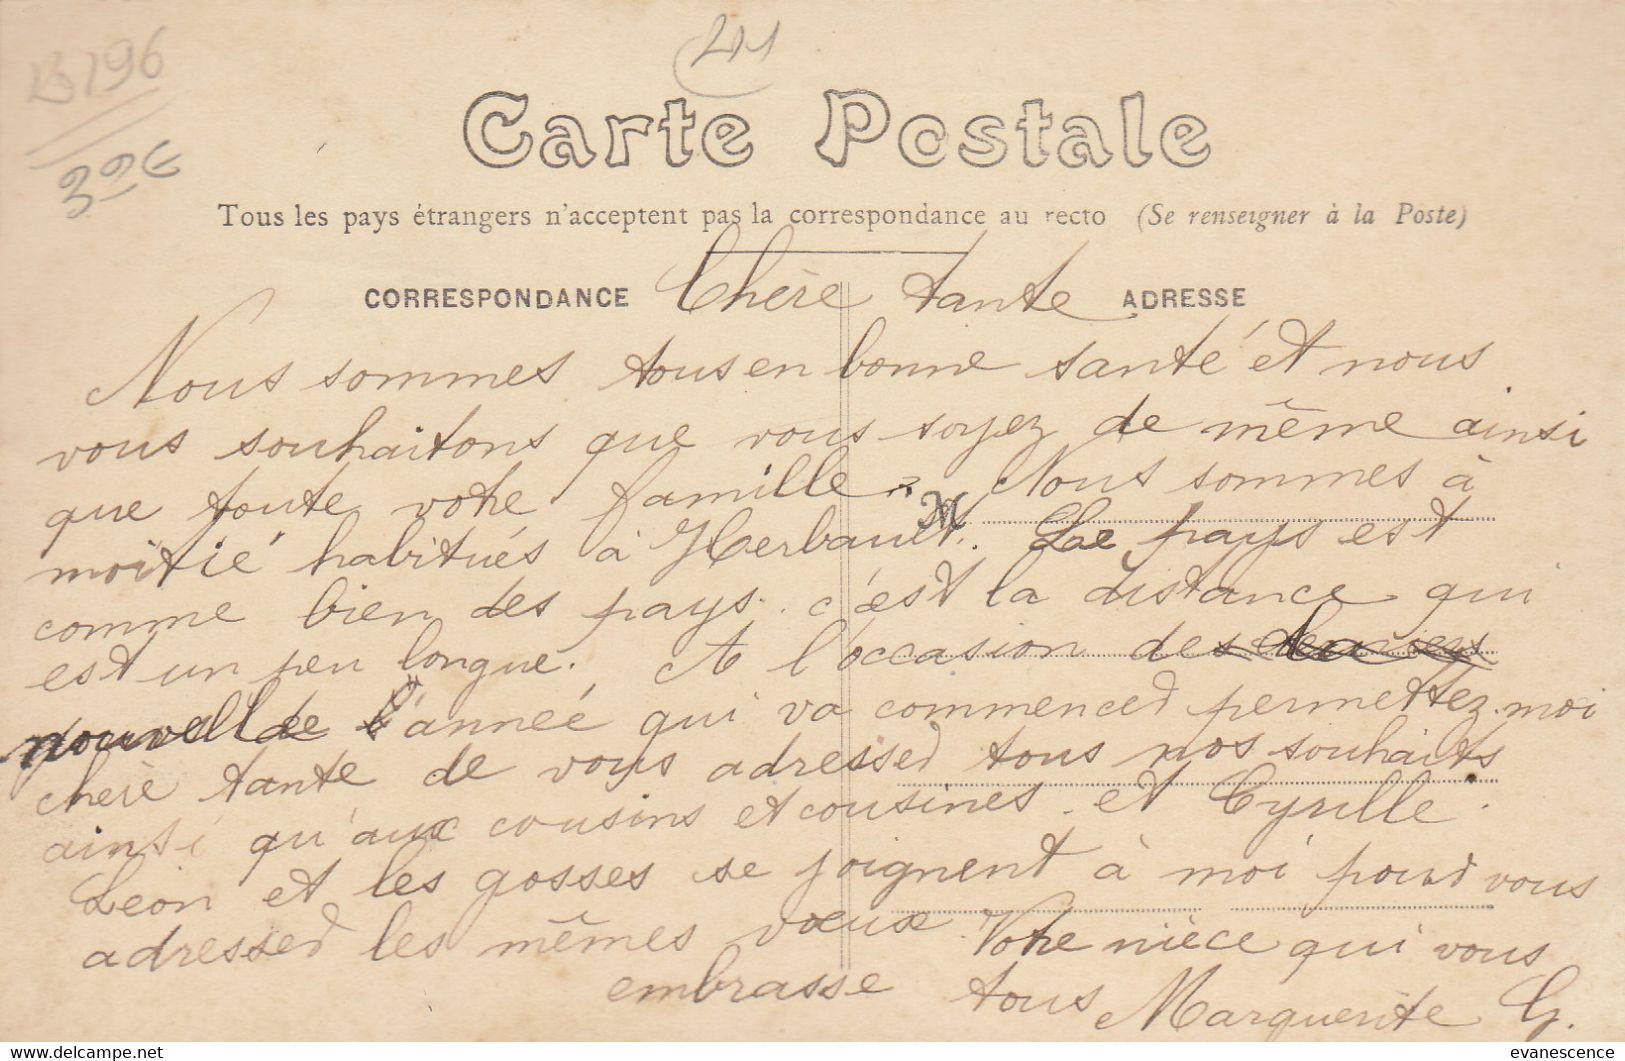 B196
41
39€
Carte Postale
Tous les pays étrangers n'acceptent pas la correspondance au recto (Se renseigner à la Poste)
CORRESPONDANCE Chère tante ADRESSE
Nous sommes tous en bonne santé et nous
vous souhaitons que vous soyez de même ainsi
que toute votre famille. Nous sommes à
M
moitié habitués à Herbault. Le pays est
comme bien des pays. c'est la distance qui
est un peu longue. A l'occasion de
nouvelle l'année qui va commencer permettez-moi
chère tante de vous adresser tous nos souhaits
ainsi qu'aux cousins et cousines et Cyrille.
Léon et les gosses se joignent à moi pour vous
adresser les mêmes vœux. Votre nièce qui vous
embrasse tous Marguerite G.
delcampe.net
evanescence